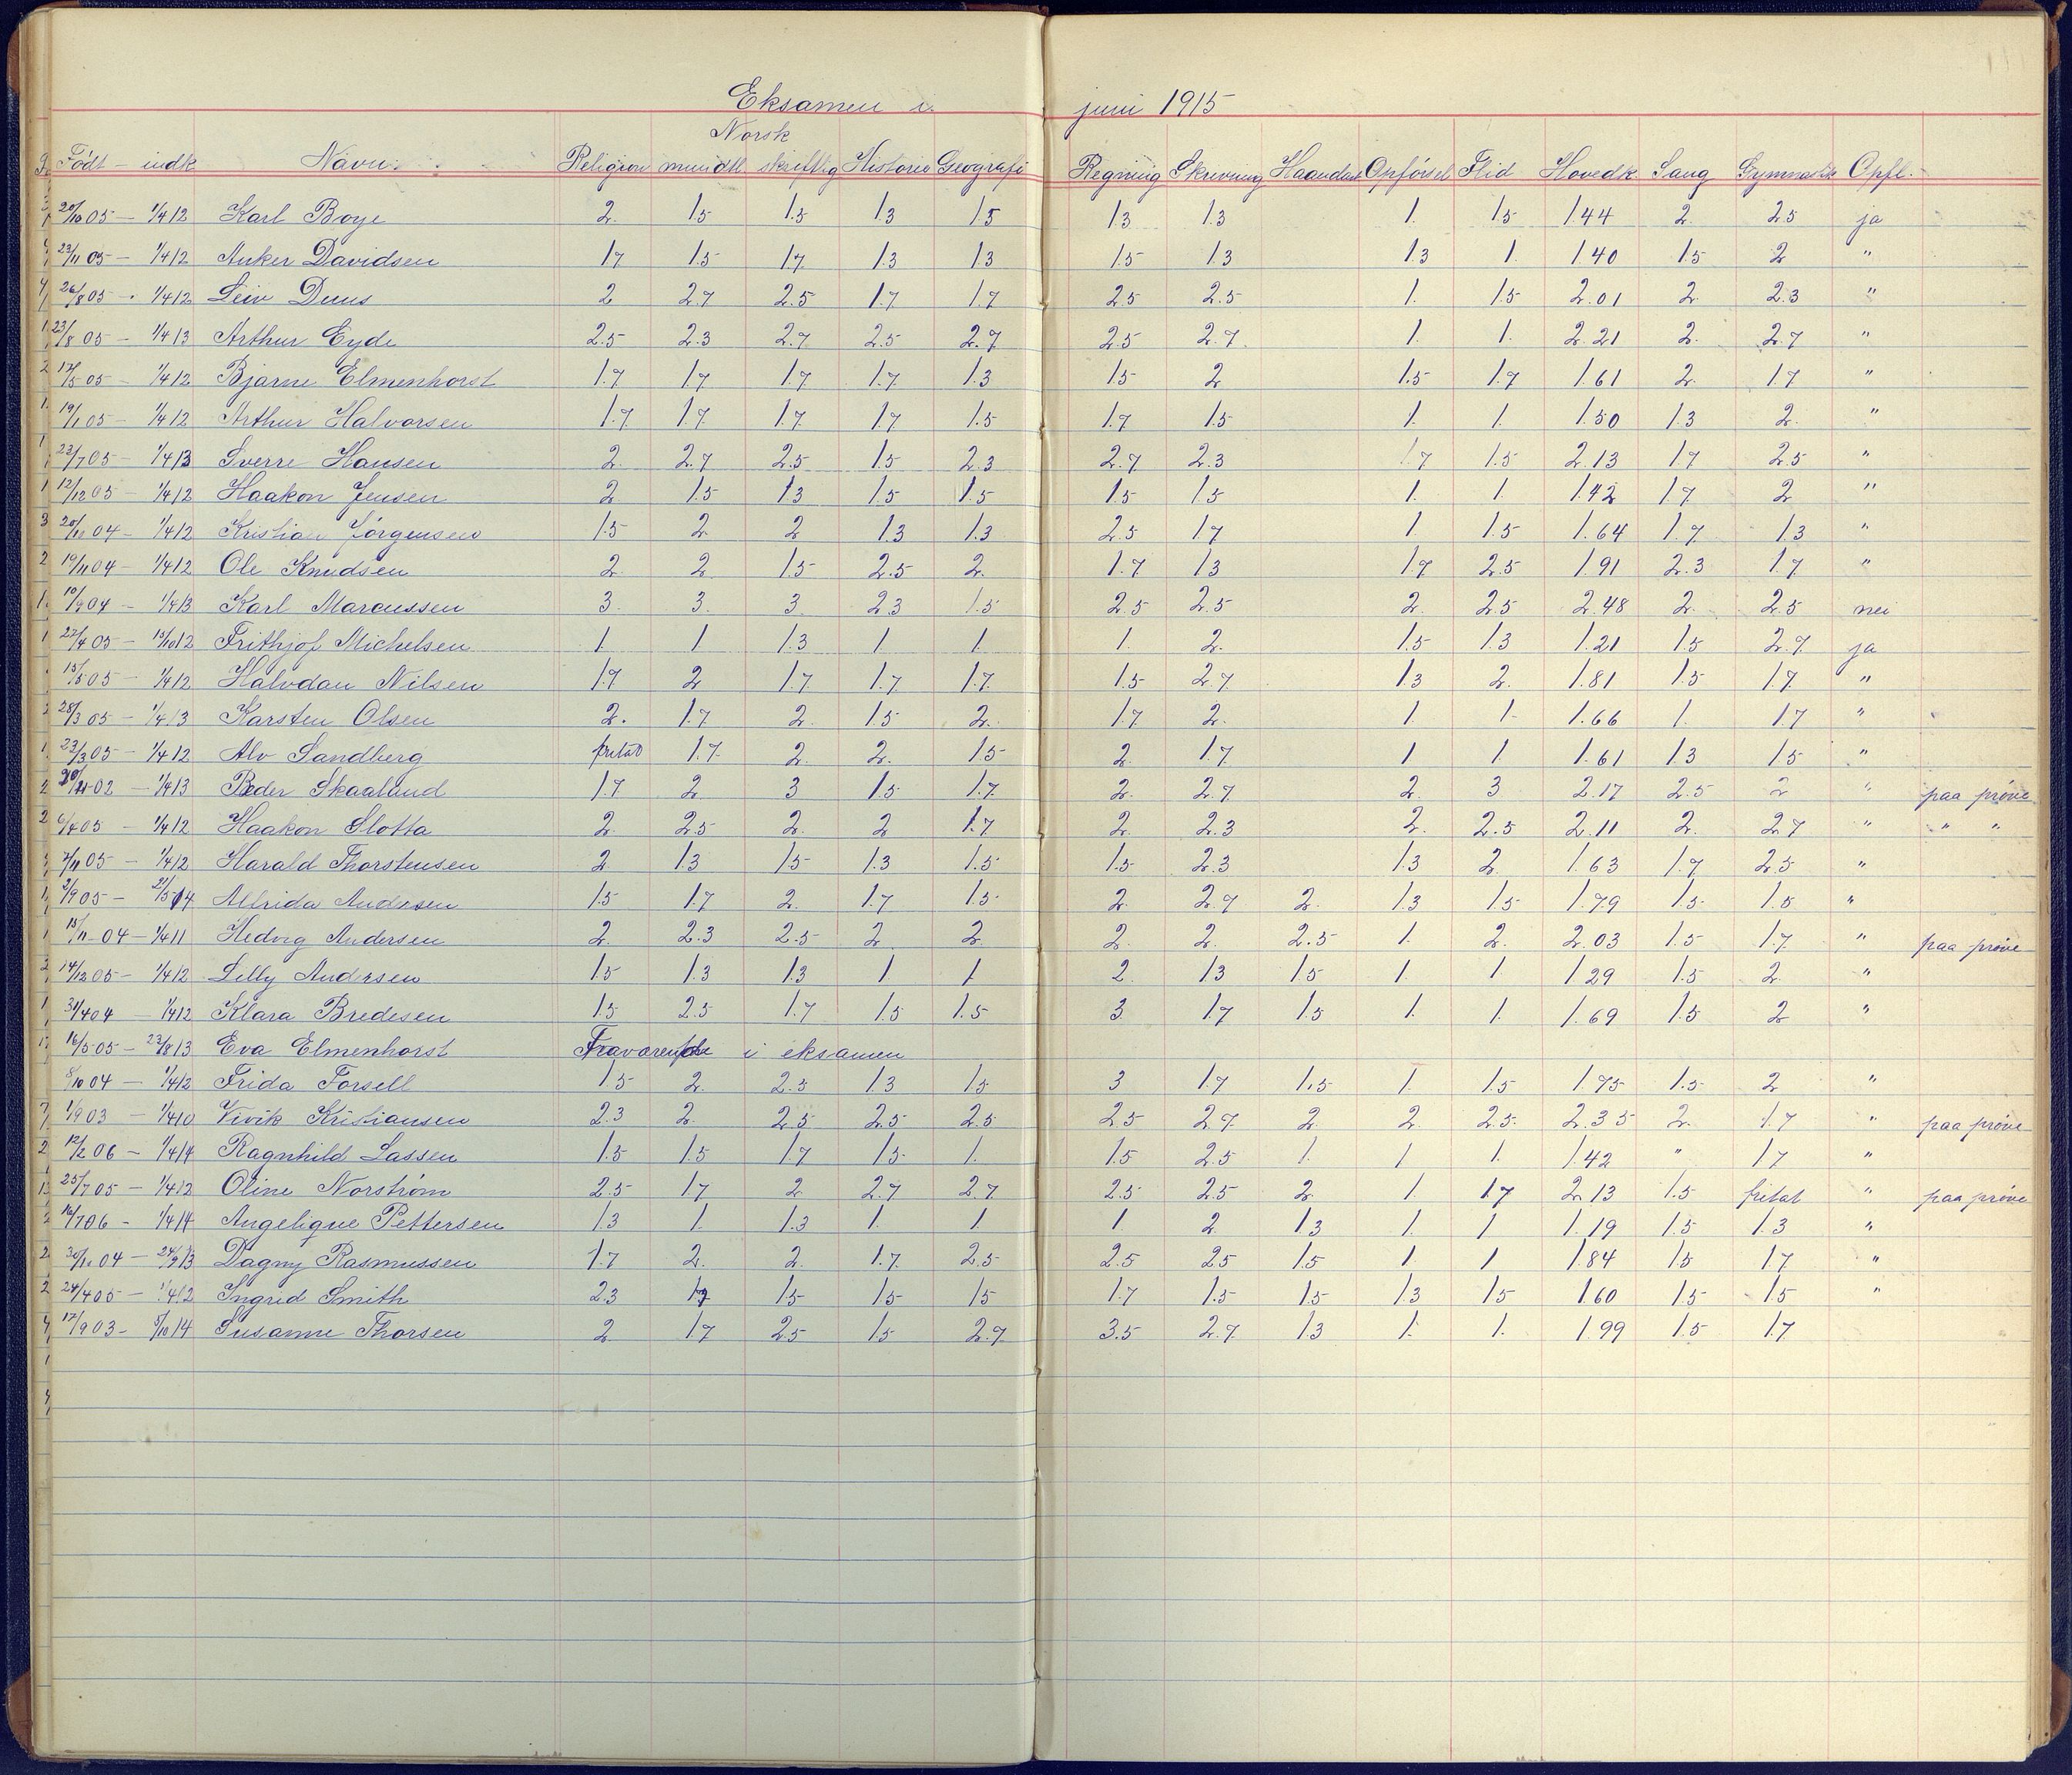 Eksamen i juni 1915
Norsk
Født – indk Navn. Religion mundtl skriftlig Historie Geografi Regning Skrivning Haandarb Opførsel Flid Hovedk Sang Gymnastik Opfl.
20/10 05 – 1/4 12 Karl Boye 2. 1.5 1.5 1.3 1.5 1.3 1.3 1. 1.5 1.44 2. 2.5 ja
23/11 05 – 1/4 12 Anker Davidsen 1.7 1.5 1.7 1.3 1.3 1.5 1.3 1.3 1. 1.40 1.5 2 "
26/8 05 – 1/4 12 Leiv Duus 2 2.7 2.5 1.7 1.7 2.5 2.5 1. 1.5 2.01 2. 2.3 "
23/8 05 – 1/4 13 Arthur Eyde 2.5 2.3 2.7 2.5 2.7 2.5 2.7 1. 1. 2.21 2. 2.7 "
17/5 05 – 1/4 12 Bjarne Elmenhorst 1.7 1.7 1.7 1.7 1.3 1.5 2 1.5 1.7 1.61 2. 1.7 "
19/1 05 – 1/4 12 Arthur Halvorsen 1.7 1.7 1.7 1.7 1.5 1.7 1.5 1. 1. 1.50 1.3 2. "
23/7 05 – 1/4 13 Sverre Hansen 2. 2.7 2.5 1.5 2.3 2.7 2.3 1.7 1.5 2.13 1.7 2.5 "
12/12 05 – 1/4 12 Haakon Jensen 2 1.5 1.3 1.5 1.5 1.5 1.5 1. 1. 1.42 1.7 2 "
20/11 04 – 1/4 12 Kristian Jörgensen 1.5 2 2 1.3 1.3 2.5 1.7 1 1.5 1.64 1.7 1.3 "
19/11 04 – 1/4 12 Ole Knudsen 2. 2 1.5 2.5 2. 1.7 1.3 1.7 2.5 1.91 2.3 1.7 "
10/9 04 – 1/4 13 Karl Marcussen 3. 3. 3. 2.3 1.5 2.5 2.5 2. 2.5 2.48 2. 2.5 nei
27/4 05 – 15/10 12 Frithjof Michelsen 1 1 1.3 1 1 1. 2. 1.5 1.3 1.21 1.5 2.7 ja
15/5 05 – 1/4 12 Halvdan Nilsen 1.7 2 1.7 1.7 1.7 1.5 2.7 1.3 2. 1.81 1.5 1.7 "
28/3 05 – 1/4 13 Karsten Olsen 2. 1.7 2. 1.5 2. 1.7 2. 1 1. 1.66 1. 1.7 "
23/3 05 – 1/4 12 Alv Sandberg fritat 1.7 2. 2. 1.5 2. 1.7 1 1 1.61 1.3 1.5 "
02 – 1/4 13 Peder Skaaland 1.7 2. 3 1.5 1.7 2. 2.7 2. 3 2.17 2.5 2 " paa prøve
6/4 05 – 1/4 12 Haakon Slotta 2. 2.5 2. 2 1.7 2. 2.3 2. 2.5 2.11 2. 2.7 " " "
7/11 05 – 1/4 12 Harald Thorstensen 2 1.3 1.5 1.3 1.5 1.5 2.3 1.3 2. 1.63 1.7 2.5 "
2/9 05 – 2/5 14 Alfrida Andersen 1.5 1.7 2. 1.7 1.5 2. 2.7 2. 1.3 1.5 1.79 1.5 1.5 "
15/11 04 – 1/4 11 Hedvig Andersen 2. 2.3 2.5 2. 2 2. 2. 2.5 1. 2. 2.03 1.5 1.7 " paa prøve
14/12 05 – 1/4 12 Lilly Andersen 1.5 1.3 1.3 1 1 2 1.3 1.5 1 1 1.29 1.5 2. "
31/4 04 – 1/4 12 Klara Bredesen 1.5 2.5 1.7 1.5 1.5 3 1.7 1.5 1. 1. 1.69 1.5 2 "
16/5 05 – 23/8 13 Eva Elmenhorst Fraværende i eksamen
8/10 04 – 1/4 12 Frida Forsell 1.5 2. 2.5 1.3 1.5 3 1.7 1.5 1 1.5 1.75 1.5 2 "
1/9 03 – 1/4 10 Vivik Kristiansen 2.3 2. 2.5 2.5 2.5 2.5 2.7 2. 2. 2.5 2.35 2. 1.7 " paa prøve
12/2 06 – 1/4 14 Ragnhild Lassen 1.5 1.5 1.7 1.5 1. 1.5 2.5 1. 1 1. 1.42 " 1.7 "
25/7 05 – 1/4 12 Oline Norstrøm 2.5 1.7 2 2.7 2.7 2.5 2.5 2. 1. 1.7 2.13 1.5 fritat " paa prøve
16/7 06 – 1/4 14 Angelique Pettersen 1.3 1. 1.3 1. 1. 1. 2 1.3 1 1 1.19 1.5 1.3 "
04 – 24/9 13 Dagny Rasmussen 1.7 2. 2. 1.7 2.5 2.5 2.5 1.5 1. 1 1.84 1.5 1.7 "
24/4 05 – 1/4 12 Ingrid Smith 2.3 1.7 1.5 1.5 1.5 1.7 1.5 1.5 1.3 1.5 1.60 1.5 1.5 "
17/9 03 – 5/10 14 Susanne Thorsen 2 1.7 2.5 1.5 2.7 3.5 2.7 1.3 1. 1. 1.99 1.5 1.7